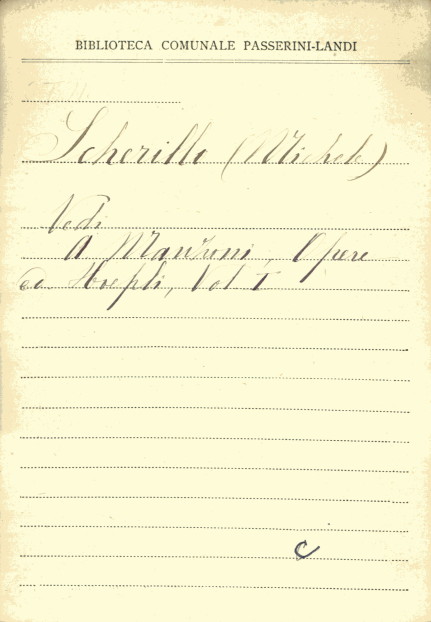 BIBLIOTECA COMUNALE PASSERINI-LANDI
Scherillo (Michele)
Vedi
A Manzoni, Opere
ed Hoepli, Vol I
C